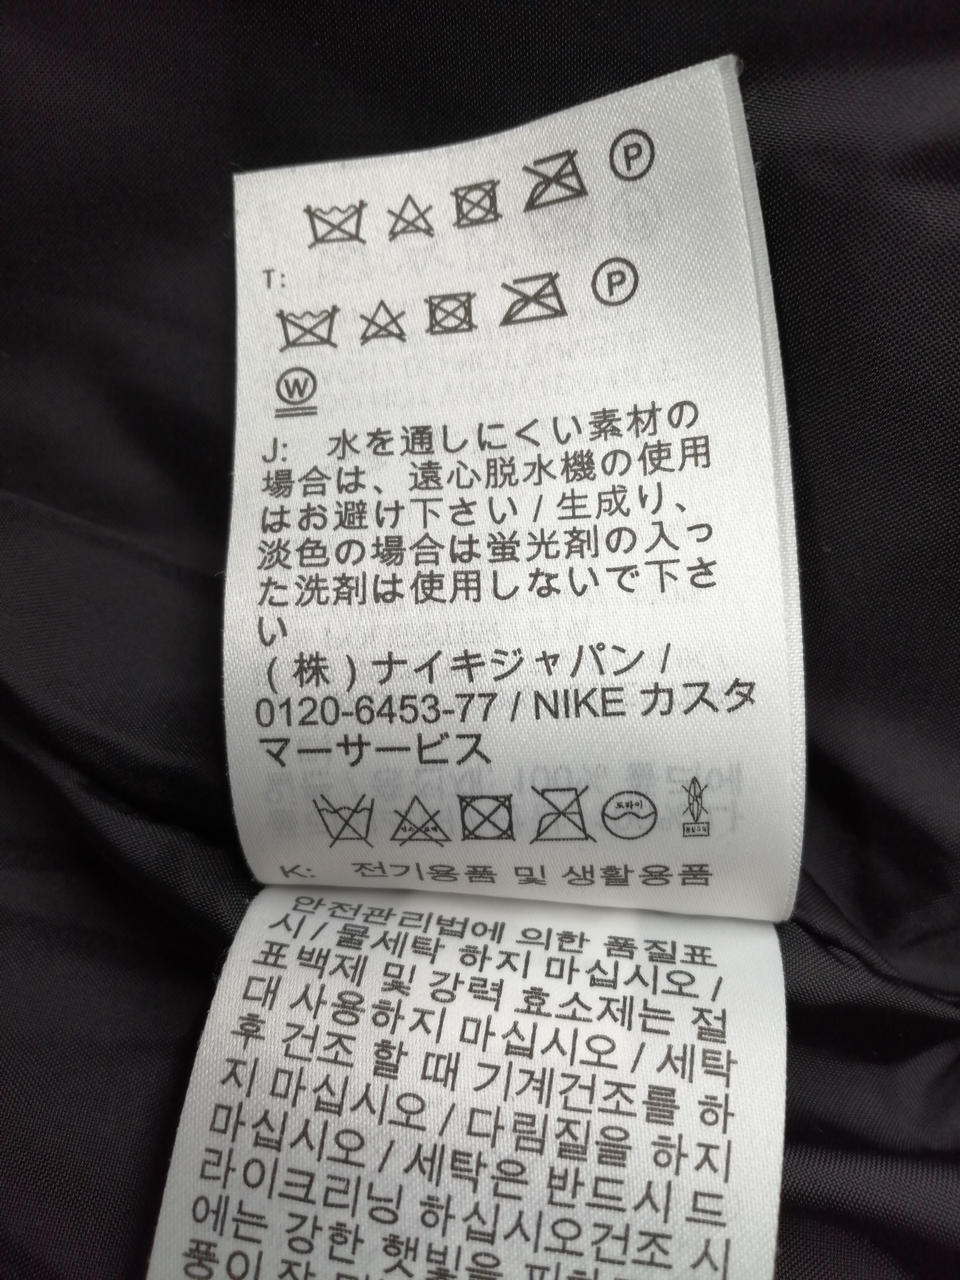 P
T:
P
W
J: 水を通しにくい素材の
場合は、遠心脱水機の使用
はお避け下さい / 生成り、
淡色の場合は蛍光剤の入っ
た洗剤は使用しないで下さ
い
(株)ナイキジャパン /
0120-6453-77 / NIKE カスタ
マーサービス
드라이
K: 전기용품 및 생활용품
안전관리법에 의한 품질표
시 / 물세탁 하지 마십시오 /
표백제 및 강력 효소제는 절
대 사용하지 마십시오 / 세탁
후 건조 할 때 기계건조를 하
지 마십시오 / 다림질을 하지
마십시오 / 세탁은 반드시 드
라이크리닝 하십시오건조 시
에는 강한 햇빛을 피하
풍이 잘